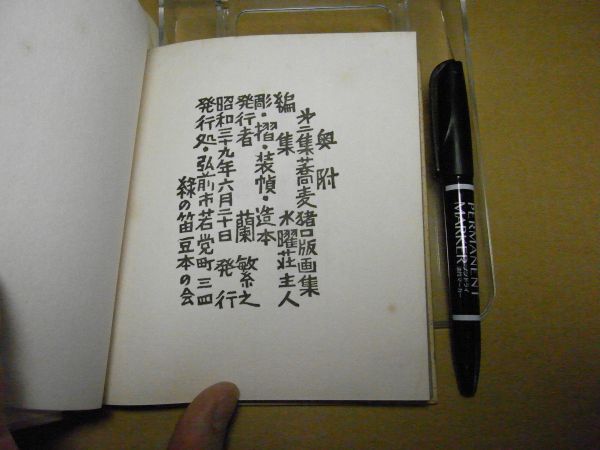 奥附
第二集蕎麦猪口版画集
編集 水曜荘主人
彫・摺・装幀・造本
発行者 蘭繁之
昭和三十九年六月二十日 発行
発行処・弘前市若党町三四
緑の笛豆本の会
PERMANENT
MARKER